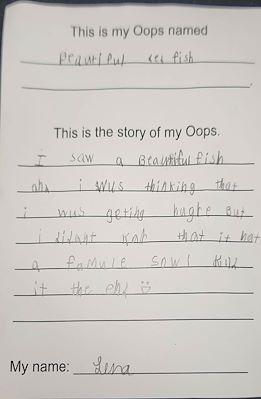 This is my Oops named
Beautiful fish
This is the story of my Oops.
I saw a Beautiful fish
and i wus thinking that
i wus geting hughe But
i didant that it hat
a famule sow I kild
it the end
My name: Lena